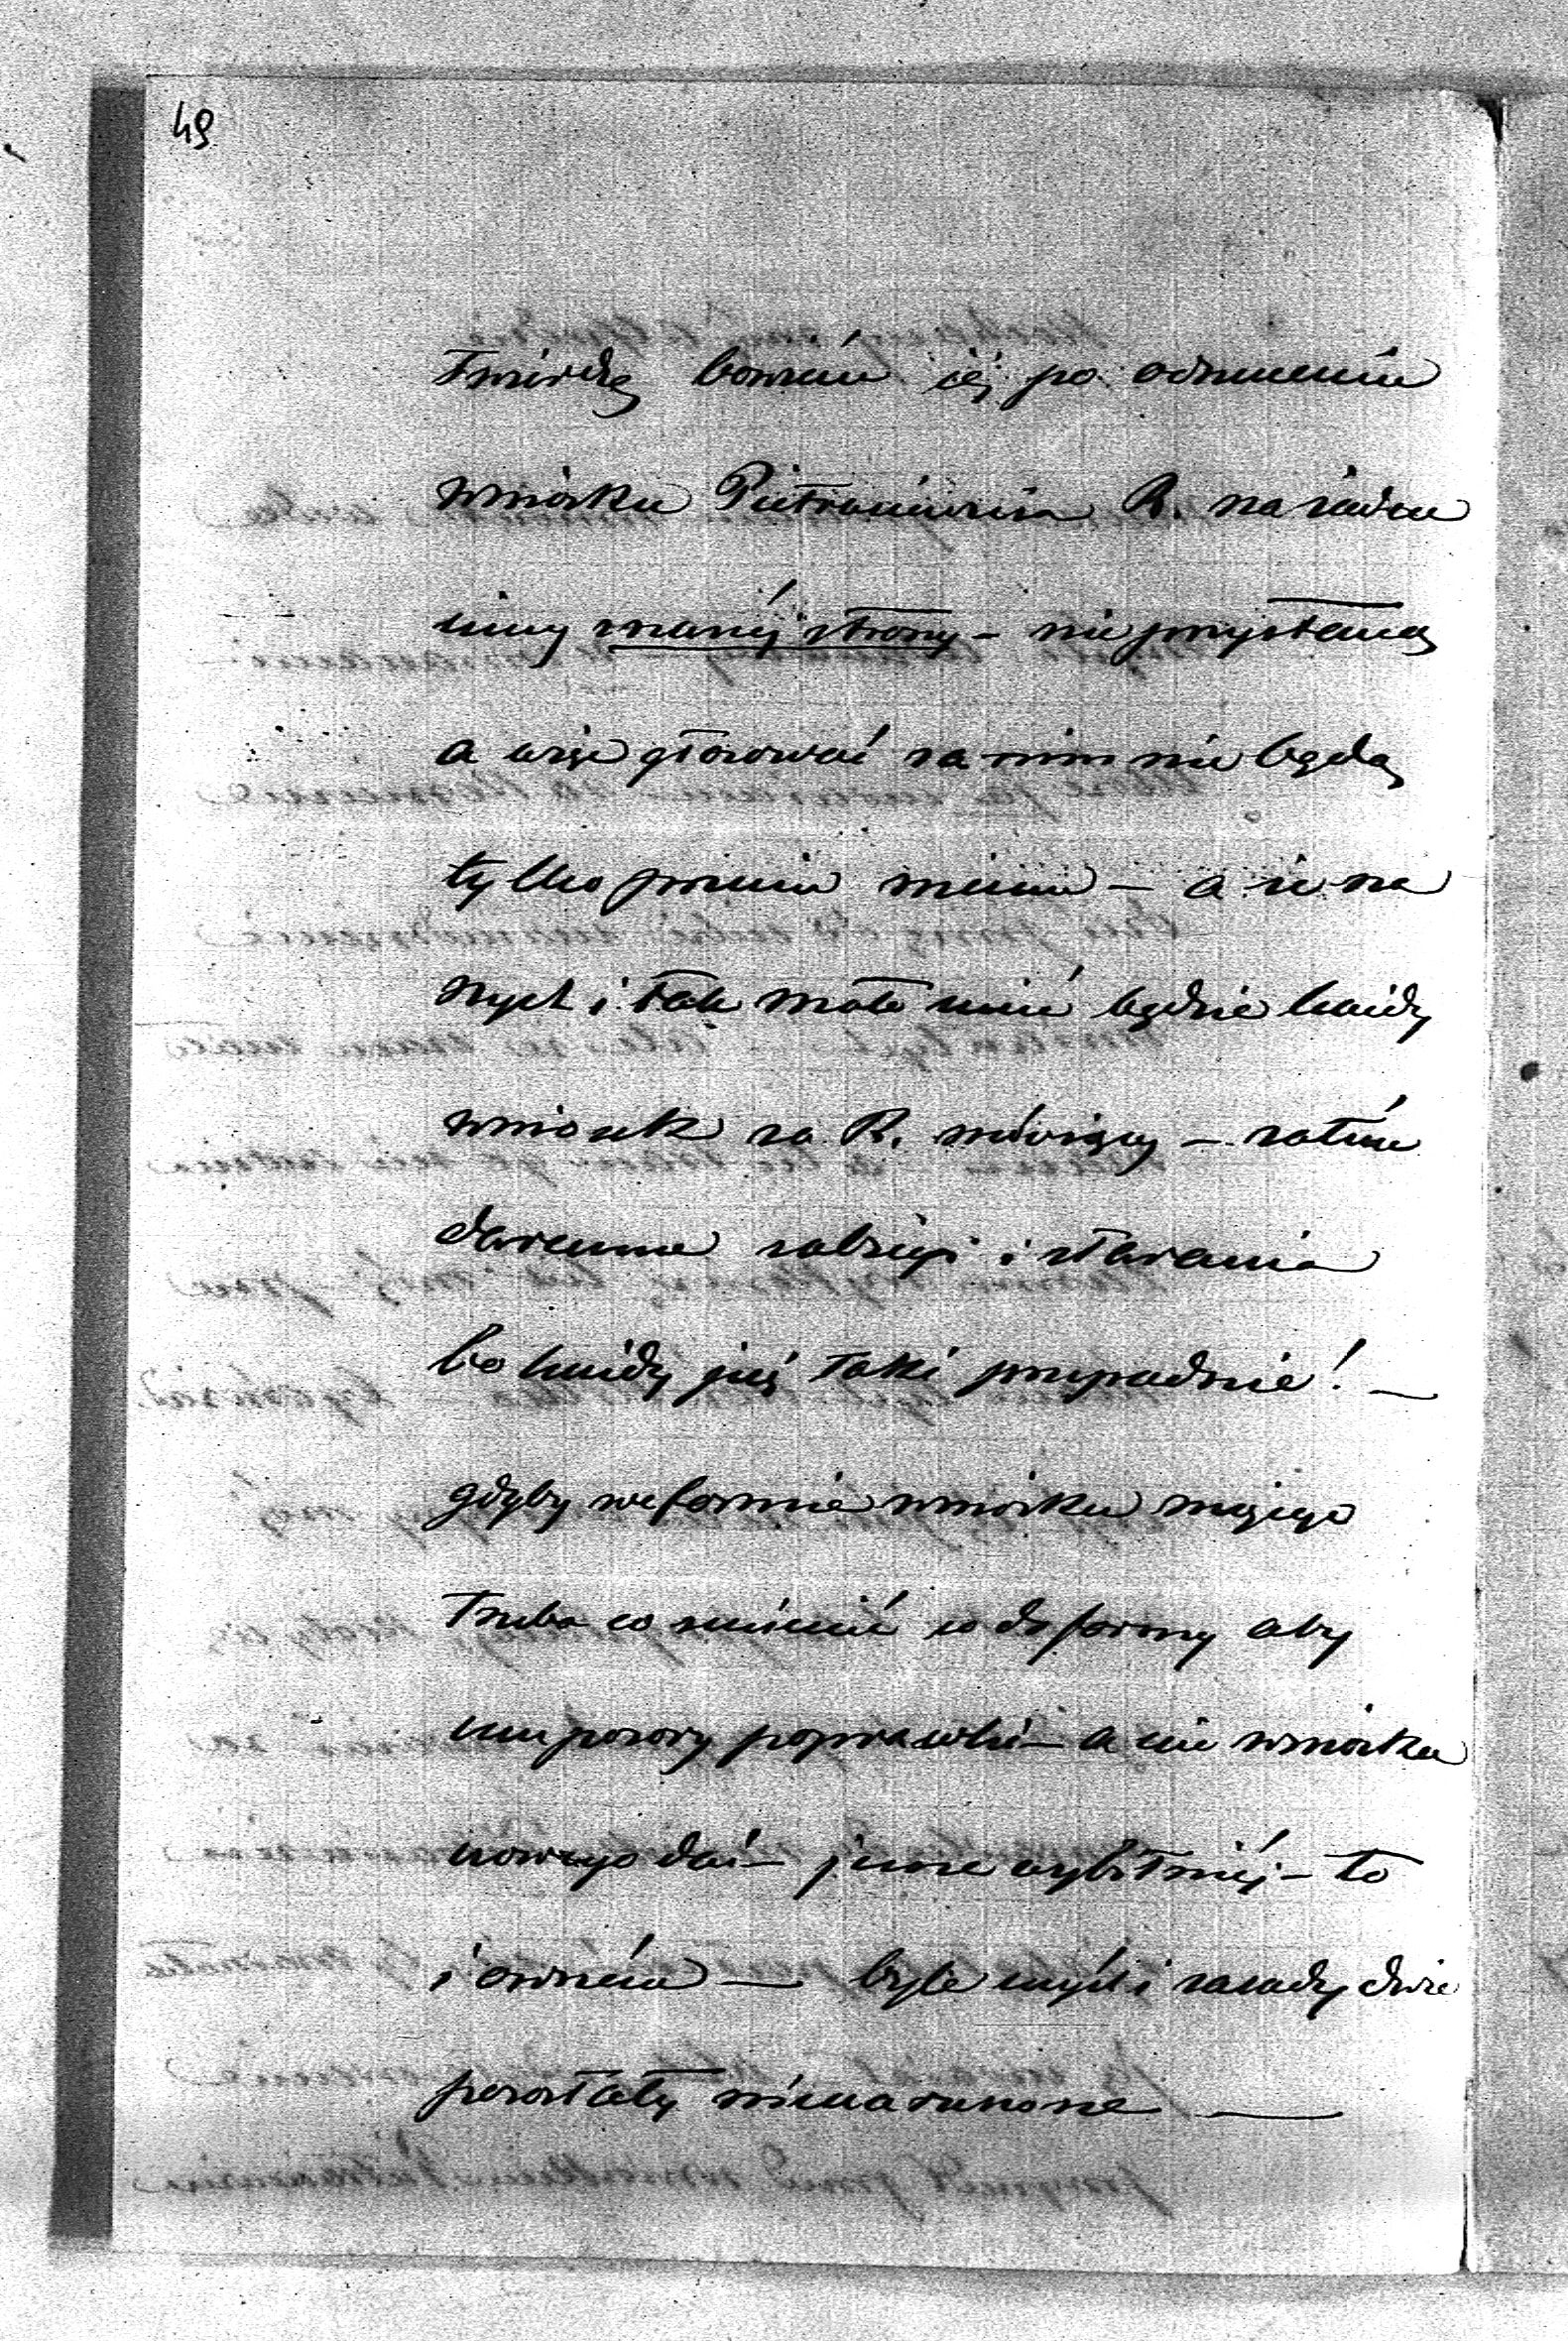 49
Twierdzą bowiem iéj po odrzuceniu
wniosku Pietraniewicza R. na żaden
inny znanéj strony – nie przystaną
a więc głosować za nim nie będą
tylko przeciw niemu – a że na
szych i tak mało więc będzie każdy
wniosek za R. mówiący – zatém
daremne zabiegi i starania
bo każdy już taki przepadnie! —
gdyby w formie wniosku mojego
trzeba co zmienić co do formy aby
mu pozory poprawki – a nie wniosku
nowego dać – jeszcze wybitniéj – to
i owszem — byle myśl i zasady dwie
pozostały nienaruszone —